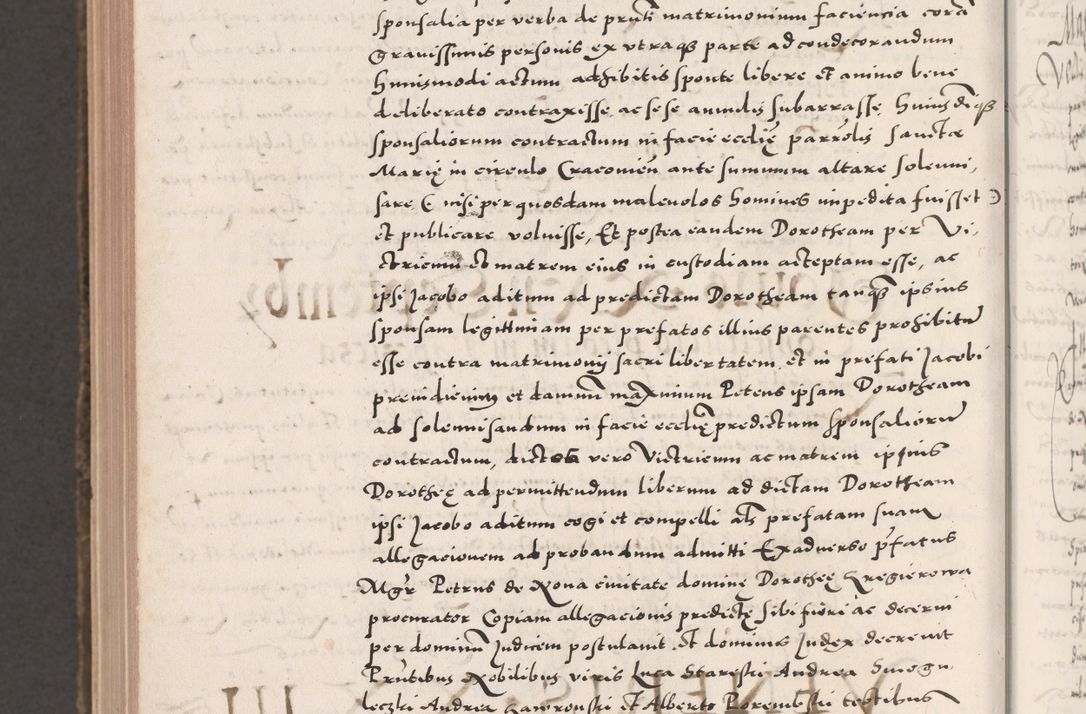 sponsalia per verba de prnti matrimonium faciencia cora
Grauissimis personis ex vtraqз parte ad condecorandum
Huiusmodi actum adhibitis sponte libere et animo bene
deliberato contraxisse, ac sese annulis subarrasse, Huius diqз
sponsaliorum contractum in facie eccliȩ parrolis Sanctæ
Mariȩ in circulo Cracouien ante summum altare solenni,
sare ( nisi per quosdam maleuolos homines impedita fuisset )
et publicare voluisse, Et postea eandem Dorotheam per Vi,
ctricum et matrem eius in custodiam acceptam esse, ac
ipsi Jacobo aditum ad predictam Dorotheam tanqз ipsius
sponsam legittimam per prefatos illius parentes prohibitu
esse contra matrimonij sacri libertatem et in prefati Jacobi
preiudicium et damnu maximum Petens ipsam Dorotheam
ad solemnisandum in facie eccliȩ predictum sponsalioru
contractum, dictos vero Victricum ac matrem ipsius
Dorotheȩ ad permittendum liberum ad dictam Dorotheam
ipsi Jacobo aditum cogi et compelli als prefatam suam
allegacionem ad probandum admitti Exaduerso pfatus
Mgr Petrus de Noua ciuitate dominȩ Dorotheȩ
procurator Copiam allegacionis predictȩ sibi fieri ac decerni
per dominu Judicem postulauit Et dominus Judex decreuit
Prntibus Nobilibus viris Luca Andrea Smogu
leczki Andrea Et Alberto Porembski testibus